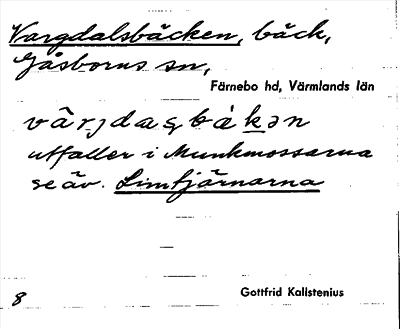 Vargdalsbäcken, bäck,
Gåsborns sn,
Färnebo hd, Värmlands län
utfaller i Munkmossarna
se äv. Limtjärnarna
8
Gottfrid Kallstenius